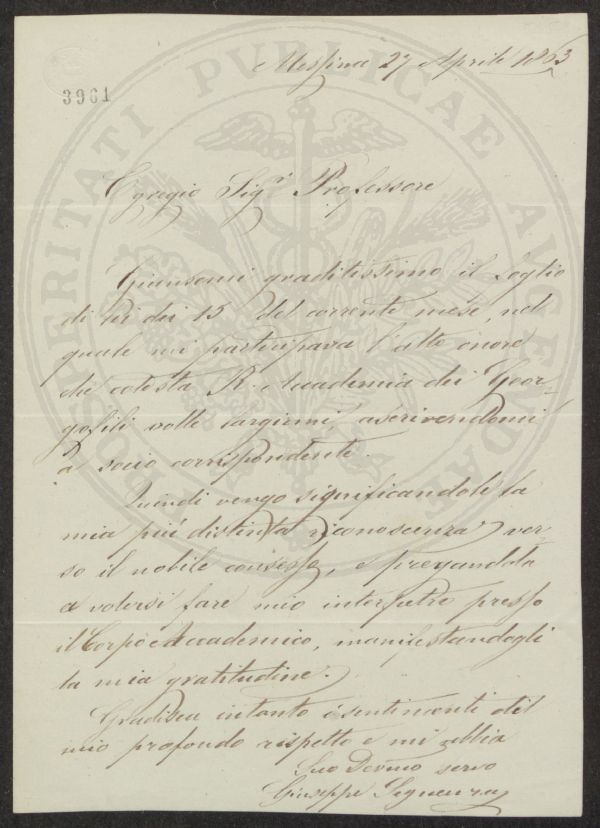 Messina 27 Aprile 1863
3961
PROSPERITATI PVBLICAE AVGENDAE
Egregio Sigr Professore
Giunsemi graditissimo il foglio
di Lei dei 15 del corrente mese, nel
quale mi partecipava l'alto onore
che cotesta R. Accademia dei Geor-
gofili volle largirmi, ascrivendomi
a socio corrispondente.
Quindi vengo significandole la
mia più distinta riconoscenza ver-
so il nobile consesso, e pregandola
a volersi fare mio interpetre presso
il Corpo Accademico, manifestandogli
la mia gratitudine.
Gradisca intanto i sentimenti del
mio profondo rispetto e mi abbia
Suo Devmo servo
Giuseppe Seguenza